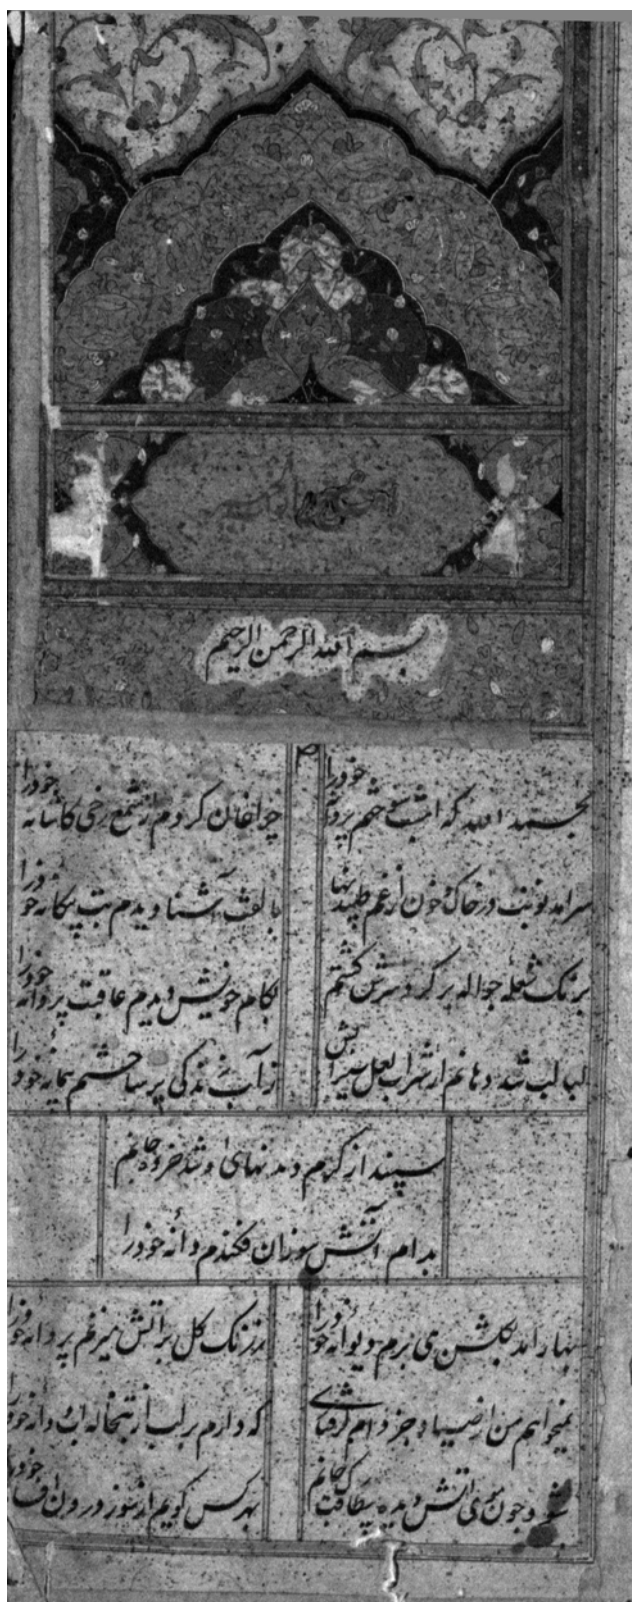 بسم الله الرحمن الرحیم
بحمد الله که امشب سوختم پروانه خودرا
چراغان کردم از شمع رخی کاشانه خودرا
سرامد نوبت در خاک و خون از غم طپیدنها
بالفت آشنا دیدم بت بیگانه خودرا
برنک شعله جواله بر کرد سرش کشتم
بکام خویش دیدم عاقبت پروانه خودرا
لبالب شد دهانم از شراب لعل سیرابش
ز آب زندکی پر ساختم پیمانه خودرا
سپند از کرم
بدام آتش سوزان فکندم دانه خودرا
بهار امد بکلشن می برم دیوانه خودرا
ز رنک کل براتش میزنم پروانه خودرا
نمیخواهم من از صیاد جز دام کرفتاری
که دارم بر لب از تبخاله اب و دانه خودرا
شود چون موی اتش دیده بیطاقت رک جانم
بهر کس کویم از سوز درون خودرا